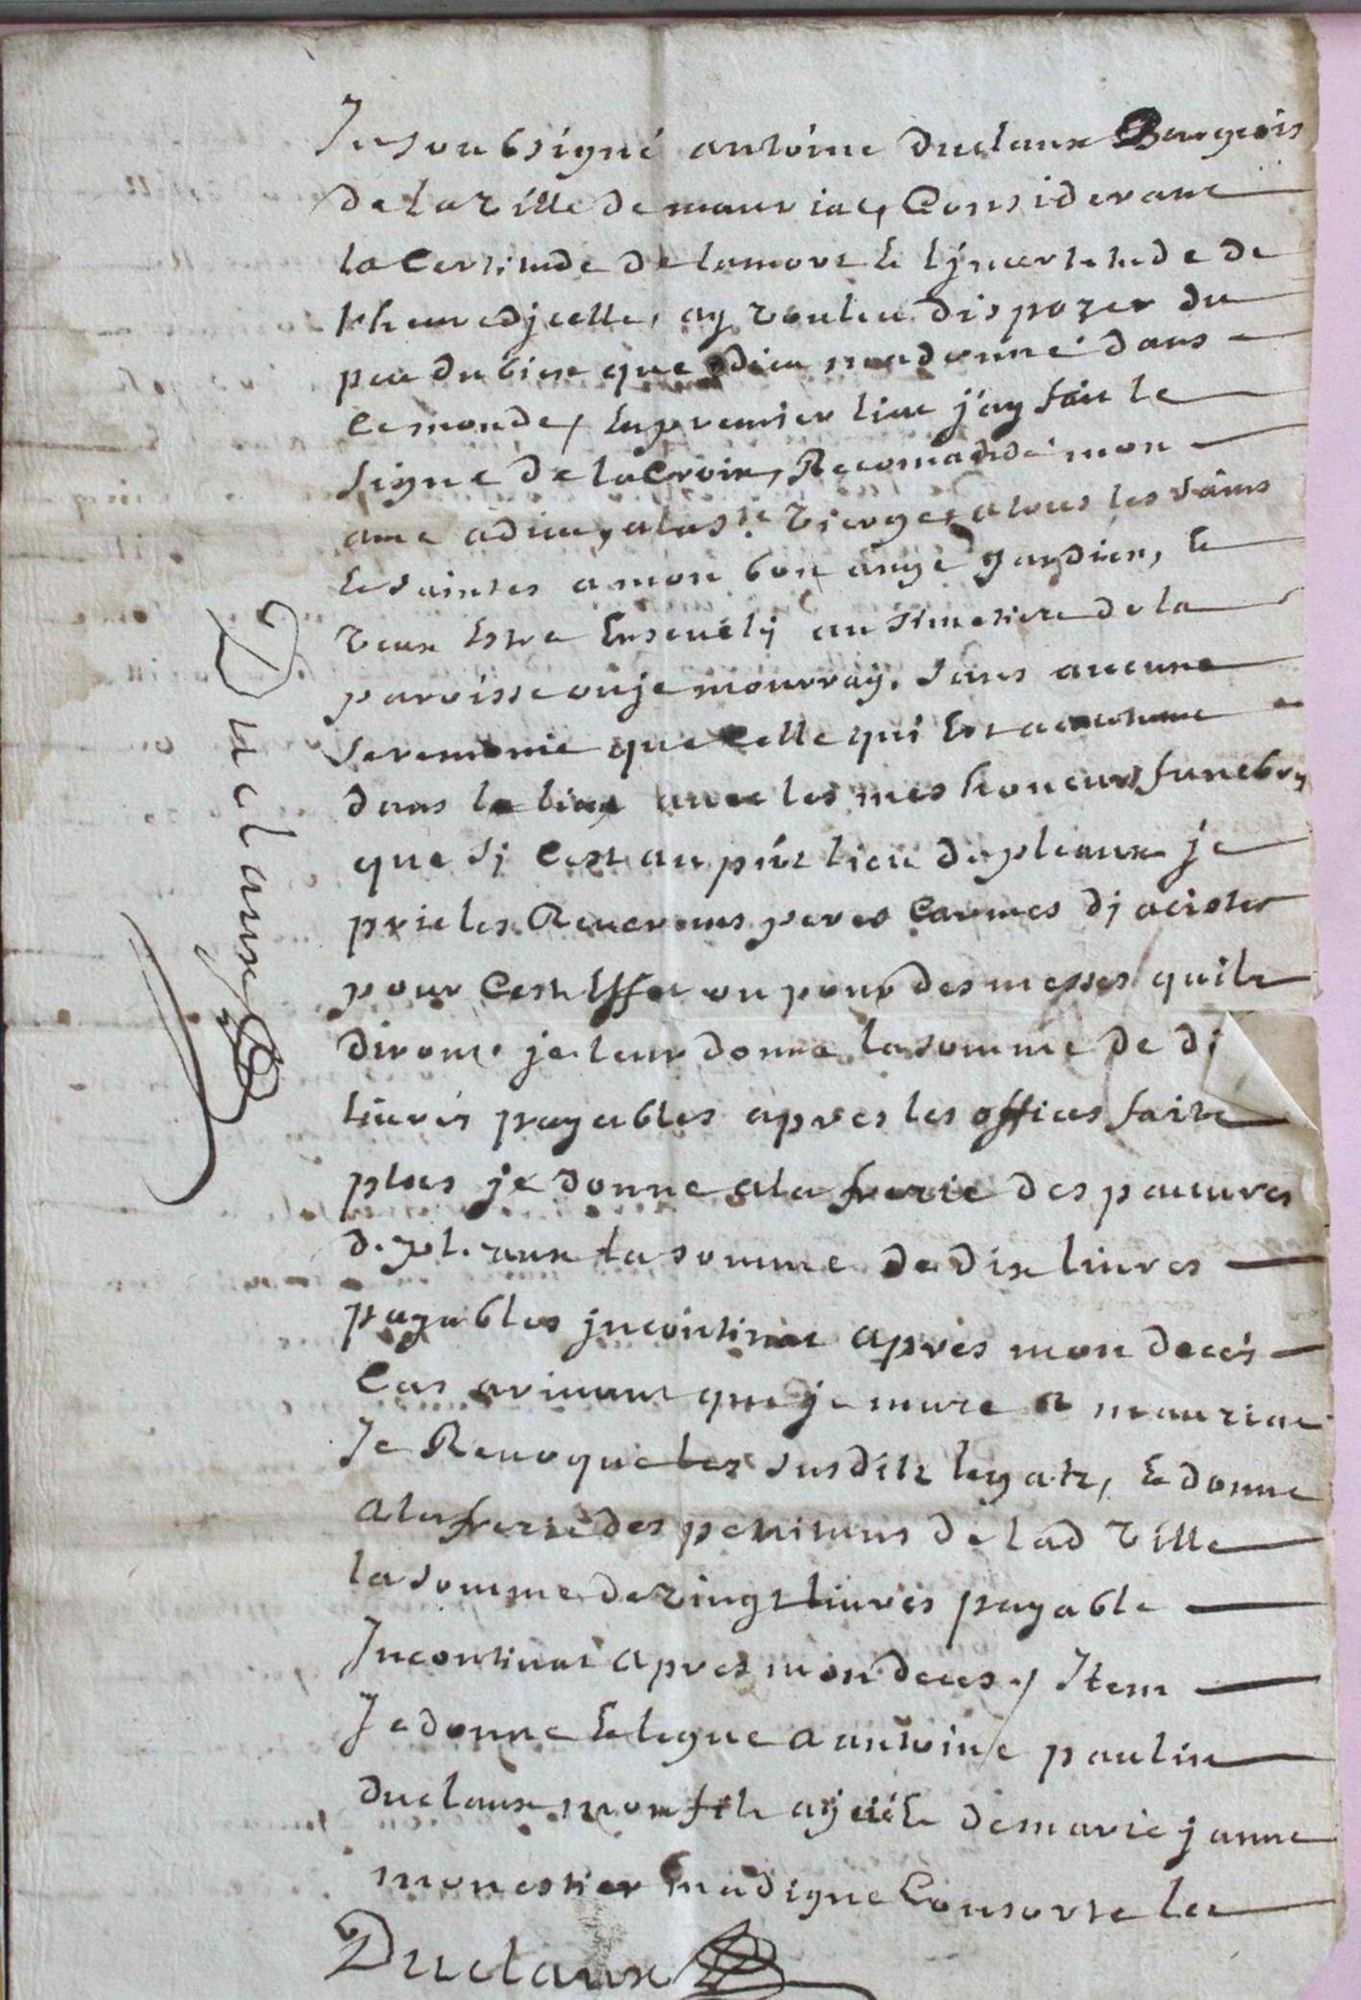 Je soubsigné antoine Duclaux Bourgeois
de la Ville de mauriac, Considerant
la Certitude de la mort & l'jncertitude de
l'heure djcelle, ay voulu dispozer du
peu du bien que dieu ma donné dans
ce monde, En premier lieu j'ay fait le
signe de la Croix, Recomandé mon
ame a dieu, a la ste Vierge & a tous les saints
& saintes a mon bon ange gardien, &
veux Estre Ensevely au simetiere de la
paroisse ou je mourray, sans aucune
seremonie que celle qui Est acoutume
dans le lieu avec les mes honeurs funebres
que sj C'est au pñt lieu de pleaux je
prie les Reverens peres Carmes dj acister
pour Cest Effet ou pour des messes quils
diront je leur donne la somme de di
livres payables apres les offices faits
plus je donne a la frerie des pauvres
de pleaux la somme de dix livres
payables jncontinat apres mon decés
Cas arivant que je mure a mauriac
Je Revoque les susdits legats, & donne
a la frerie des penitens de lad Ville
la somme de vingt livres payable
Incontinat apres mon deces, Item
Je donne & legue a antoine paulin
duclaux mon fils ayné & de marie janne
monestier ma digne Consorte la
Duclaux
Duclaux